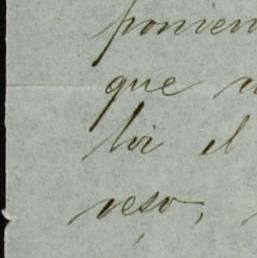 ponien
que
loi el
veso,